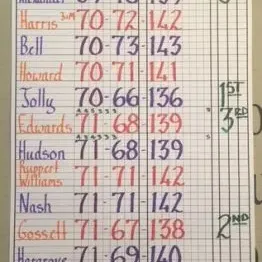 Harris 70-72-142
Bell 70-73-143
Howard 70-71-141
Jolly 70-66-136 1ST
Edwards 71 68-139 3RD
Hudson 71-68-139
Ruppert
Williams 71-71-142
Nash 71-71-142
Gossett 71-67-138 2ND
71-69-140